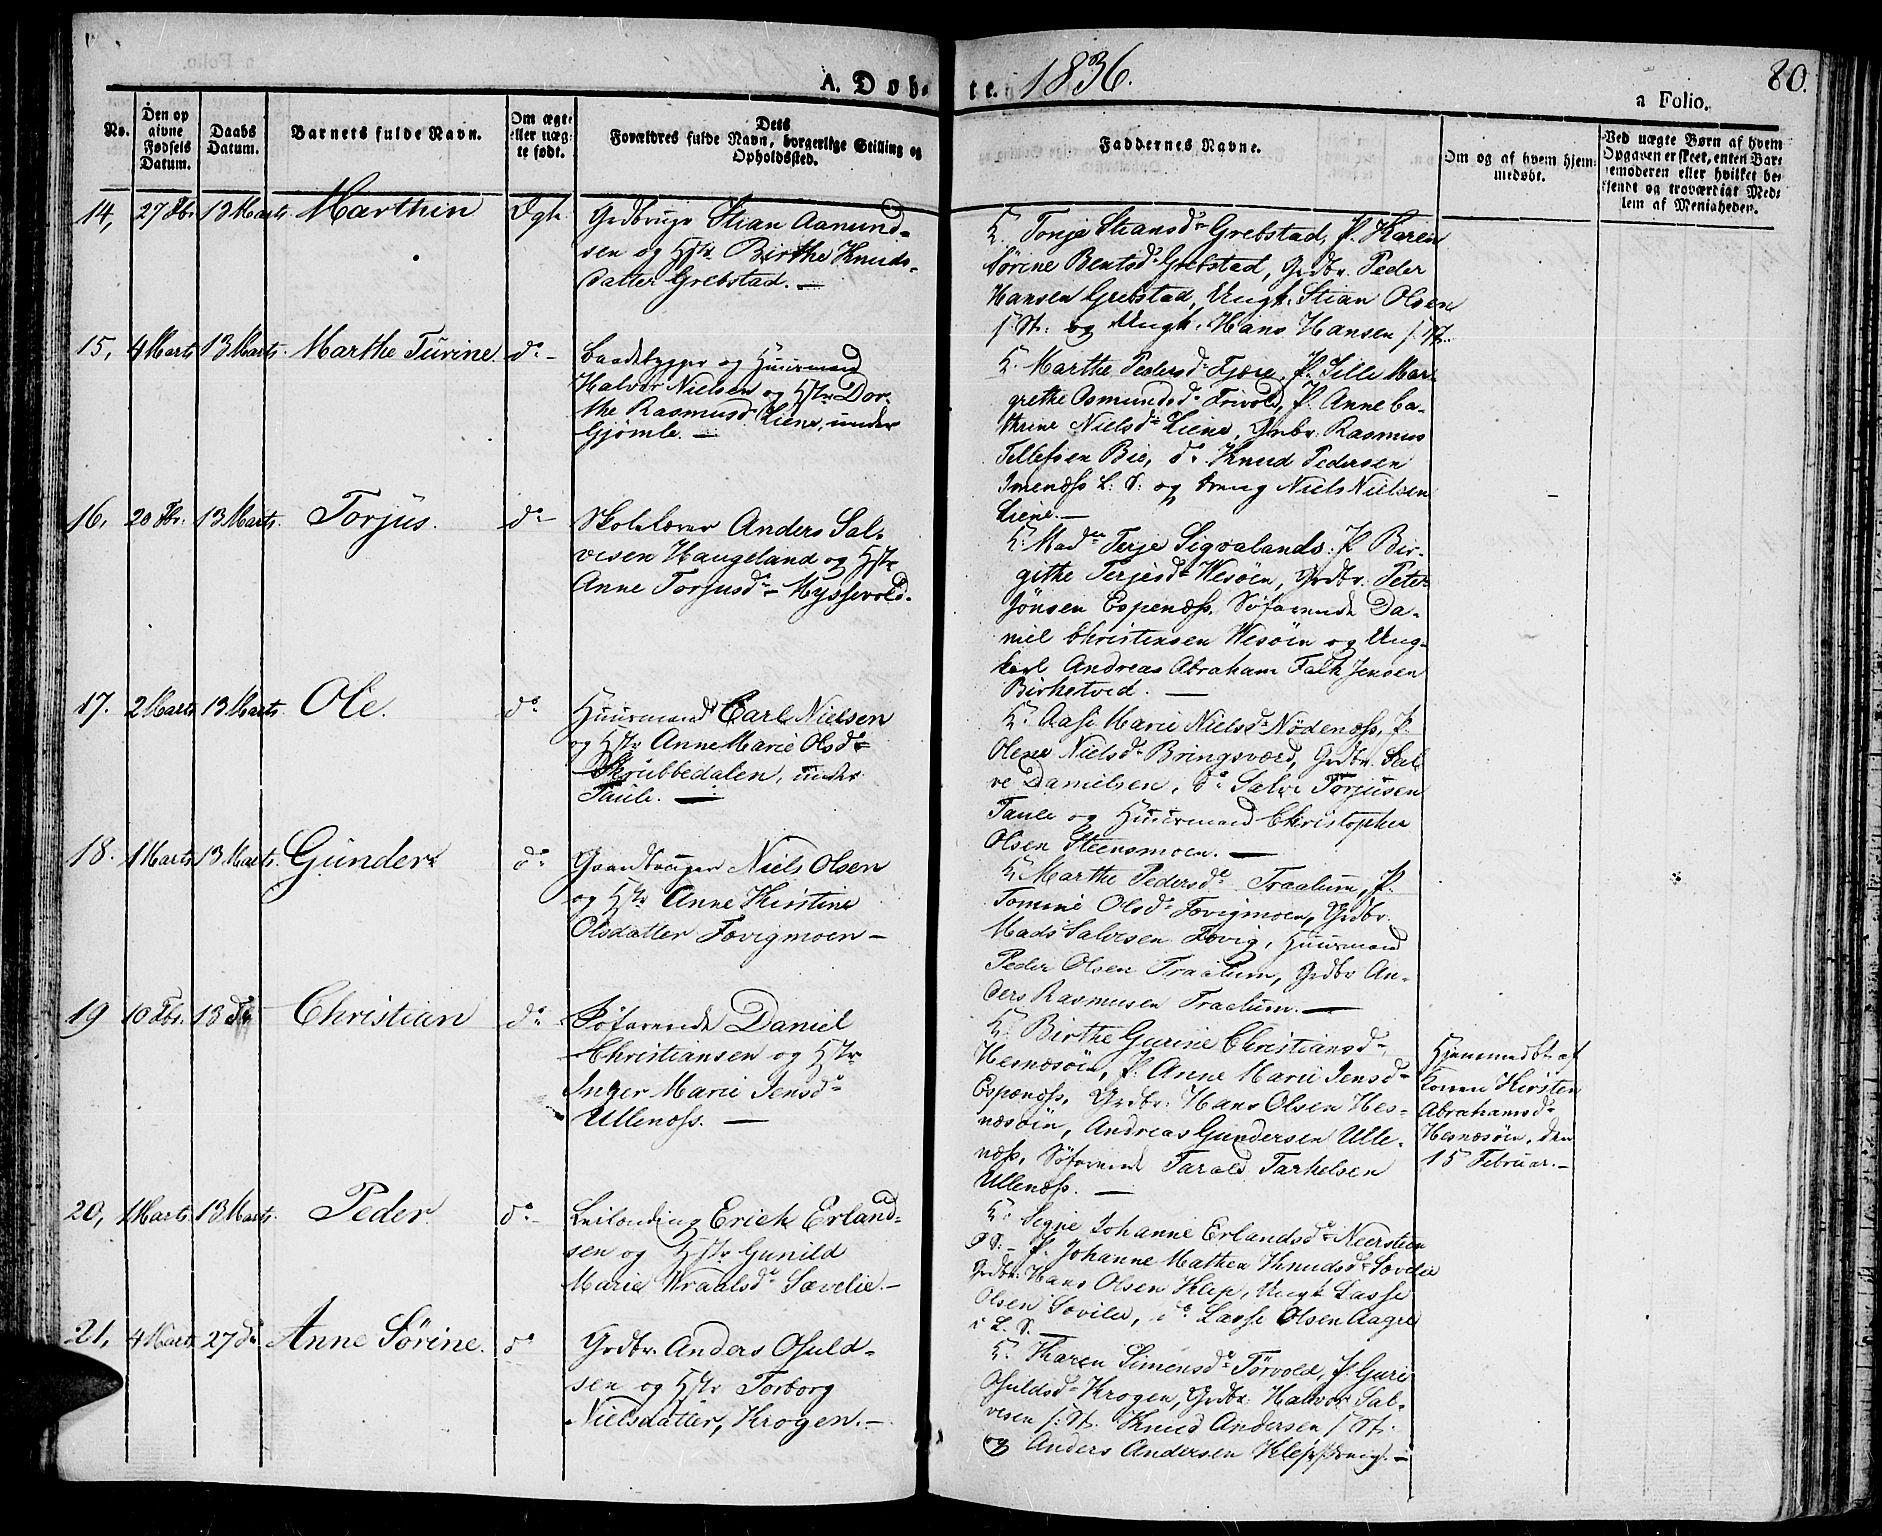 A. Døb-
te. 1836.
80.
a Folio.
No.
Den op
givne
Fødsels
Datum.
Daabs
Datum.
Barnets fulde Navn.
Om ægte
eller uæg-
te født.
Dets
Forældres fulde Navn, borgerlige Stilling og
Opholdssted.
Faddernes Navne.
Om og af hvem hjem-
medøbt.
Ved uægte Børn af hvem
Opgaven er skeet, enten Bar-
nemoderen eller hvilket be-
kjendt og troværdigt Med-
lem af Menigheden.
14, 27 Fbr. 13 Marts. Marthin Ægte
Grdbruger Stian Aamund-
sen og Hstr Birthe Knuds-
datter Grebstad. —
K. Tonje Stiansdr Grebstad, P. Karen
Sørine Bentsdr Grebstad, Grdbr. Peder
Hansen Grebstad, Ungk. Stian Olsen
s. St: og Ungk. Hans Hansen s. St.
15, 4 Marts 13 Marts. Marthe Turine. do —
Baadebygger og Huusmand
Halvor Nielsen og Hstr Dor-
the Rasmusd. Liene, under
Gjømle. —
K. Marthe Pedersdr Fjære, P. Sille Mar-
grethe Osmundsdr Frivold, P. Anne Ca-
thrine Nielsdr Liene, Grdbr. Rasmus
Tellefsen Bie, do Knud Pedersen
Imenæss L. S. og dreng Niels Nielsen
Liene. —
16, 20 Fbr. 13 Marts. Torjus. do —
Skolelærer Anders Sal-
vesen Haugeland og Hstr
Anne Torjusdr Myssevold.
K. Madme Terje Sigvalands. P. Bir-
githe Terjesdr Wesøen, Grdbr. Peter
Jonsen Espenæss, Søfarende Da-
niel Christensen Wesøen og Ung-
karl Andreas Abraham Falk Jensen
Birketved. —
17. 2 Marts 13 Marts. Ole. do
Huusmand Carl Nielsen
og Hstr Anne Marie Olsdr
Skrubbedalen, under
Taule. —
K. Aase Marie Nielsdr Nødenæss, P.
Olene Nielsdr Bringsværd, Grdbr. Sal-
ve Danielsen, do Salve Torjusen
Taule og Huusmand Christopher
Olsen Steensmoen. —
18. 1 Marts 13 Marts. Gunder do
Gaardbruger Niels Olsen
og Hstr Anne Kirstine
Olsdatter Fævigmoen —
K. Marthe Pedersdr Traalum, P.
Tomine Olsdr Fævigmoen, Grdbr.
Mads Salvesen Fævig, Huusmand
Peder Olsen Traalum, Grdbr An-
ders Rasmusen Traalum. —
19 10 Fbr. 13 do Christian do
Søfarende Daniel
Christiansen og Hstr
Inger Marie Jensdr
Ullenæss. —
K. Birthe Gurine Christiansdr
Hesnæsøen, P. Anne Marie Jensdr
Espenæss, Grdbr. Hans Olsen Hes-
næsøen, Andreas Gundersen Ulle-
næss, Søfarende Tarald Tarkelsen
Ullenæss. —
Hjemmedbt af
Konen Kirsten
Abrahamsdr
Hesnæsøen, den
15 Februar. —
20, 1 Marts. 13 Marts. Peder. do —
Leilænding Erich Erland-
sen og Hstr Gunild
Marie Wraalsdr Sævelie. —
K. Signe Johanne Erlandsdr Neersteen
Ø S. — P. Johanne Mathea Knudsdr Sævelie
Grdbr. Hans Olsen Klep, Ungk Lasse
Olsen Sævilie, do Lasse Olsen Aagre
i L. S. —
21, 4 Marts 27 do Anne Sørine. do
Grdbr. Anders Osuld-
sen og Hstr Torborg
Nielsdatter, Krogen. —
K. Karen Simensdr Torvold, P. Guri
Osuldsdr Krogen, Grdbr. Halvor Sal-
vesen s. St. Knud Andersen s. St.
og Anders Andersen Klep